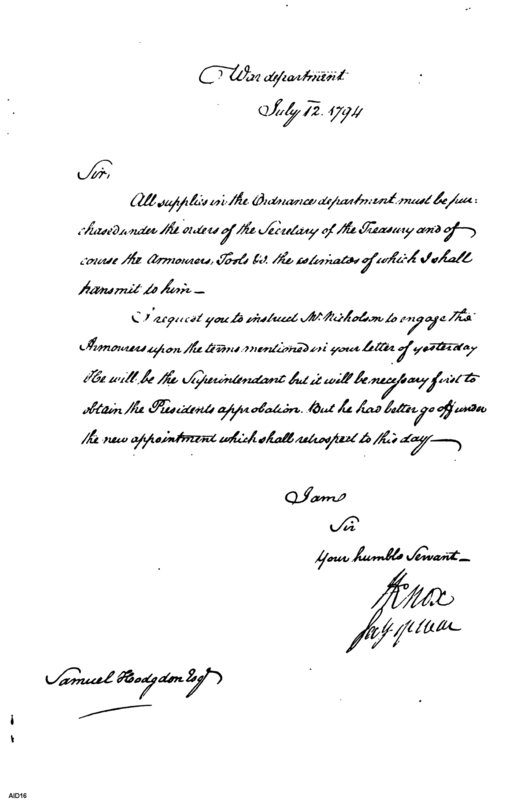 War department
July 12. 1794
Sir,
All supplies in the Ordnance department must be pur:
chased under the orders of the Secretary of the Treasury and of
course the Armourers Tools &c. the estimates of which I shall
transmit to him —
I request you to instruct Mr. Nicholson to engage the
Armourers upon the terms mentioned in your letter of yesterday
He will be the Superintendant but it will be necessary first to
obtain the Presidents approbation. But he had better go off under
the new appointment which shall retrospect to this day —
I am
Sir
Your humble Servant —
HKnox
Secy of war
Samuel Hodgdon Esqr
AID16